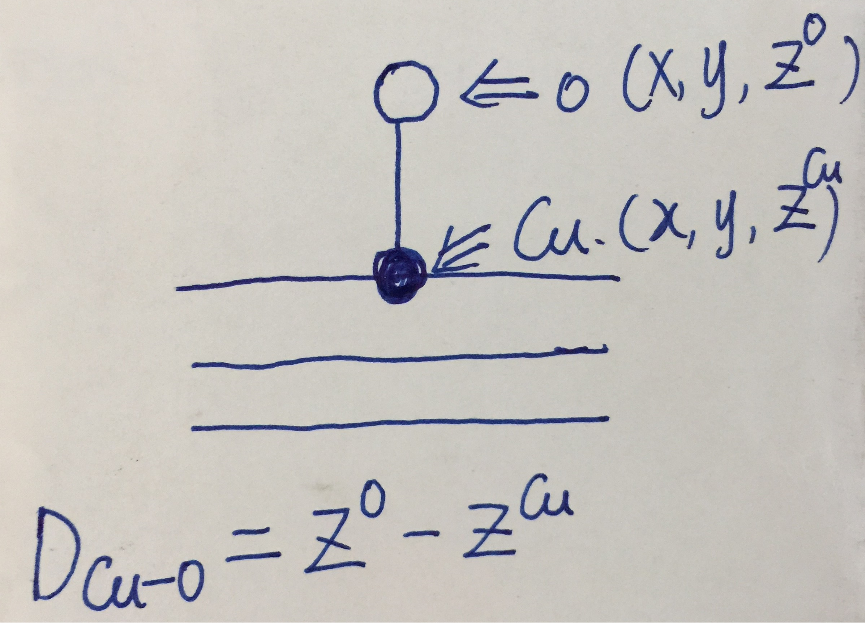 ⇐ O (x, y, z^O)
Cu. (x, y, z^Cu)
D_Cu-O = z^O - z^Cu